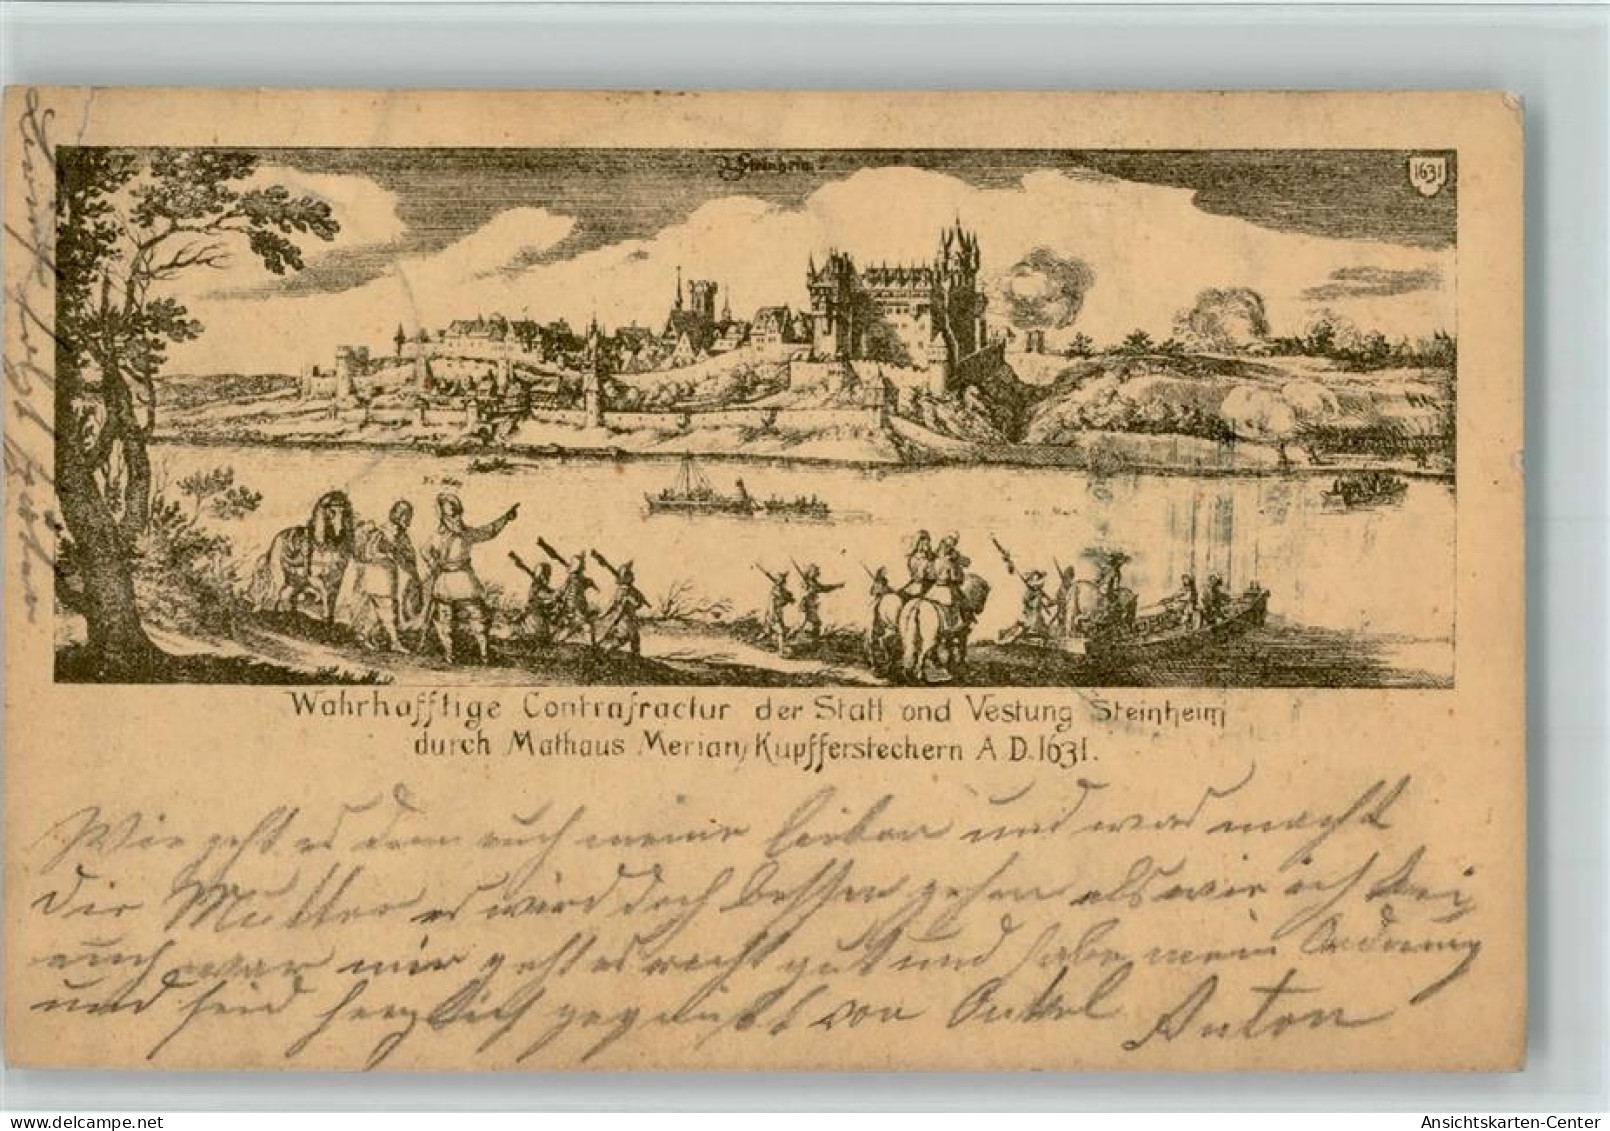 Steinheim
1631
Wahrhafftige Contrafractur der Statt ond Vestung Steinheim
durch Mathaus Merian, Kupfferstechern A D. 1631.
Wie geht es denn euch meine lieben und was macht
die Mutter es wird doch besser gehen als wie ich bei
euch war mir geht es recht gut und habe mein Ordnung
und seid herzlich gegrüßt von Onkel Anton
Ansichtskarten-Center